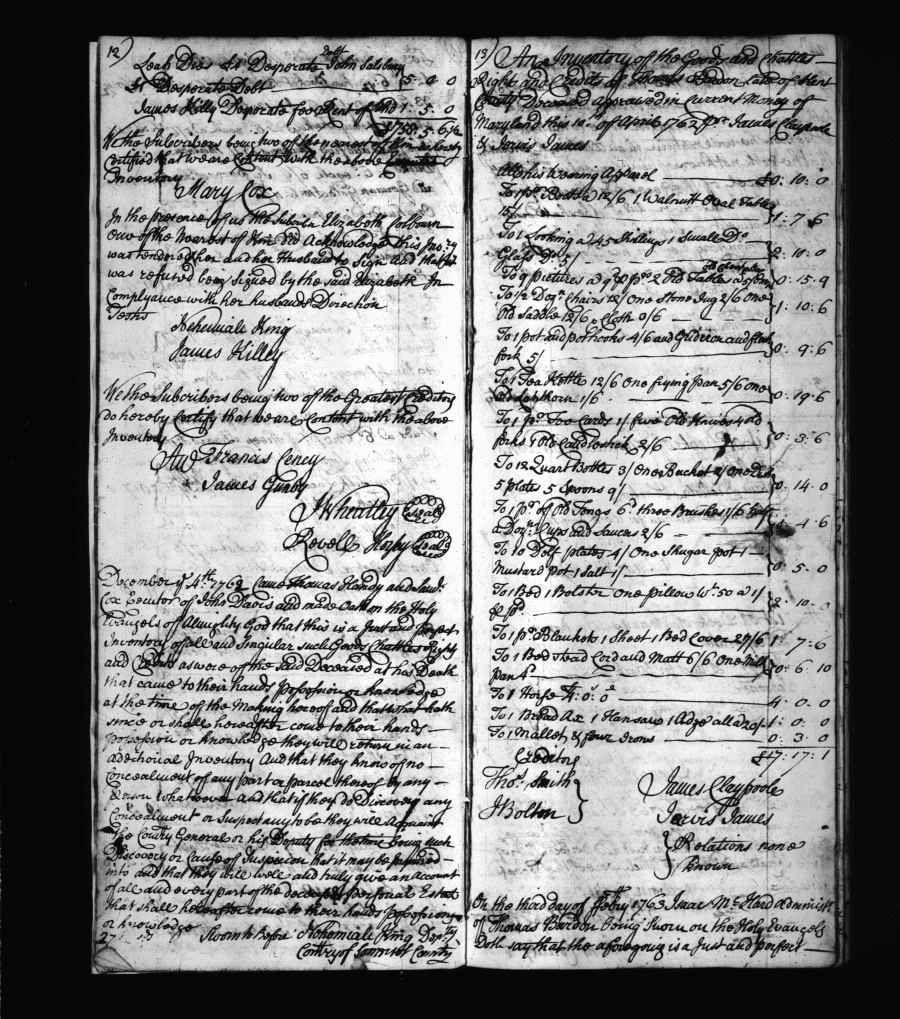 12)
Leah Dies Dr Desperate Debt John Salsbury
Dr Desperate Debt 5 0 0
James Killy Desperate for Rent of 1 5 0
£1758: 5: 6½
We the Subscribers being two of the nearest of
Certified that we are Content with the above
Inventory
Mary Cox
In the presence of us the Subscribr Elizabeth Colbourn
one of the Nearest of Kin did Acknowledge this Inv:ry
was tendered her and her Husband to Sign and that it
was refused being signed by the said Elizabeth In
Compliance with her husbands Direction
Tests
Nehemiah King
James Killey
We the Subscribers being two of the Greatest Creditors
do hereby Certify that we are Content with the above
Inventory
And Francis Ceney
James Gunby
J Wheatley Seal
Revell Horsey Seal
December ye 4th 1762 Came Thomas Handy and Saml
Cox Executor of John Davis and made Oath on the Holy
Evangels of Almighty God that this is a Just and perfect
Inventory of all and Singular such Goods Chattles Rights
and Credits as were of the said Deceased at his Death
that came to their hands Possession or knowledge
at the time of the Making hereof and that that hath
since or shall hereafter come to their hands
possession or knowledge they will return in an
additional Inventory And that they know of no
Concealment of any part or parcel thereof by any
Person whatsoever and that if they do Discover any
Concealment or Suspect any to be they will Acquaint
the Comry General or his Deputy for the time being such
Discovery or Cause of Suspicion that it may be
into and that they will well and truly give an Account
of all and every part of the deceased personal Estate
that shall hereafter come to their hands possession
or knowledge
Sworn to Before Nehemiah King Depty
Comry of Somerset County
13) An Inventory of the Goods and Chattles
Rights and Credits of Thomas Burdon Late of Kent
County Deceased Appraised in Current Money of
Maryland this 10th of April 1762 pr James Claypoole
& Jervis James
All his Wearing Apparel £0: 10: 0
To 1 pr Boots a 12/6 1 Walnutt Oval Table
15/ 1: 7: 6
To 1 Looking a 45 Shillings 1 Small Do
Glass Do 5/ 2: 10: 0
To 9 pictures a 9d ps 2 Old Tables 0: 15: 9
To ½ Dozn Chairs 12/ One Stone Jug 2/6 One
Old Saddle 12/6 Cloth 3/6 1: 10: 6
To 1 pot and pot hooks 4/6 and Gridiron and flesh
fork 5/ 0: 9: 6
To 1 Tea Kettle 12/6 One frying pan 5/6 one
Old Lanthorn 1/6 0: 19: 6
To 1 pr Too Cards 1/ five Old Knives 4 old
forks 1 Old Candlestick 2/6 0: 3: 6
To 12 Quart Bottles 3/ One Bucket 2/ One Dish
5 plates 5 Spoons 9/ 0: 14: 0
To 1 pr of Old Tongs 6d three Brushes 1/6 half
a Dozn Cups and Saucers 2/6 4: 6
To 10 Delf plates 4/ One Shugar pot 1
Mustard pot 1 Salt 1/ 0: 5: 0
To 1 Bed 1 Bolster One pillow wt: 50 a 1/
& pd 2: 10: 0
To 1 pr Blankets 1 Sheet 1 Bed Cover 27/6 1: 7: 6
To 1 Bedstead Cord and Matt 6/6 One Milk
pan 4d 0: 6: 10
To 1 Horse £4: 0s: 0d 4: 0: 0
To 1 Broad Ax 1 Hansaw 1 Adge all a 20/ 1: 0: 0
To 1 Mallet & four Irons 0: 3: 0
£17: 17: 1
Creditrs
Thos Smith
J Bolton
James Claypoole
Jervis James
Relations none
known
On the third day of Febry 1763 Isaac McHard Administr
of Thomas Burdon being Sworn on the Holy Evangels
Doth say that the aforegoing is a Just and perfect